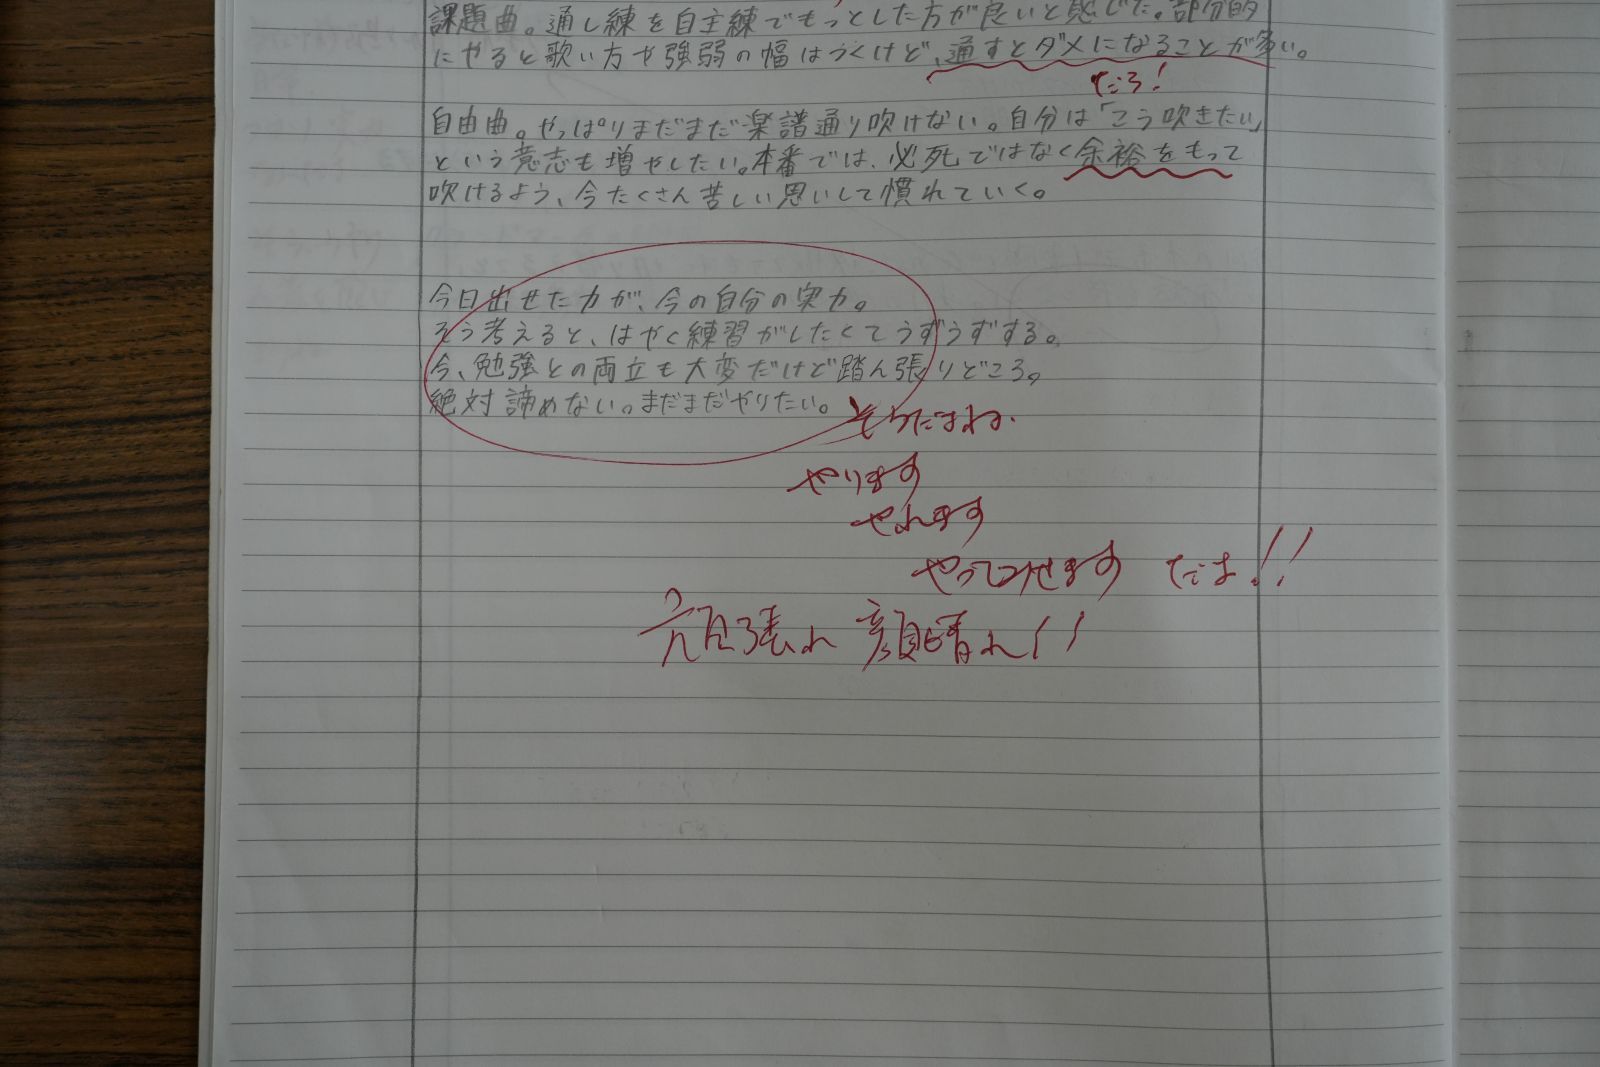 課題曲。通し練を自主練でもっとした方が良いと感じた。部分的
にやると歌い方や強弱の幅はつくけど、通すとダメになることが多い。
だろ!
自由曲。やっぱりまだまだ楽譜通り吹けない。自分は「こう吹きたい」
という意志も増やしたい。本番では、必死ではなく余裕をもって
吹けるよう、今たくさん苦しい思いして慣れていく。
今日出せた力が、今の自分の実力。
そう考えると、はやく練習がしたくてうずうずする。
今、勉強との両立も大変だけど踏ん張りどころ。
絶対諦めない。まだまだやりたい。
そうだよね。
やります
やれます
やってのけます だよ!!
頑張れ 顔晴れ!!